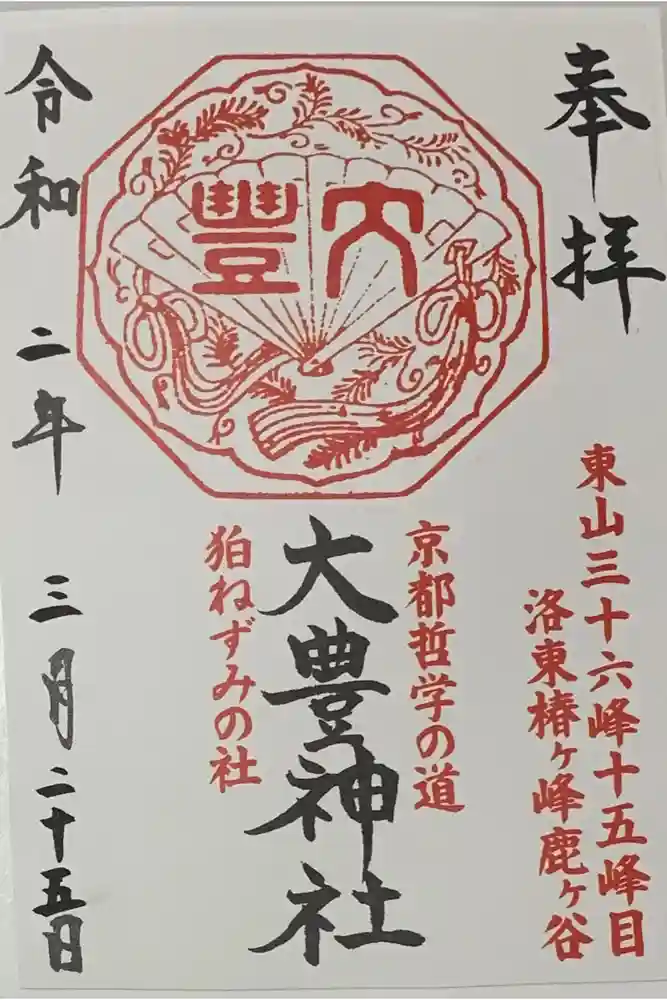 奉拝
東山三十六峰十五峰目
洛東椿ヶ峰鹿ヶ谷
大豊
京都哲学の道
大豊神社
狛ねずみの社
令和二年三月二十五日